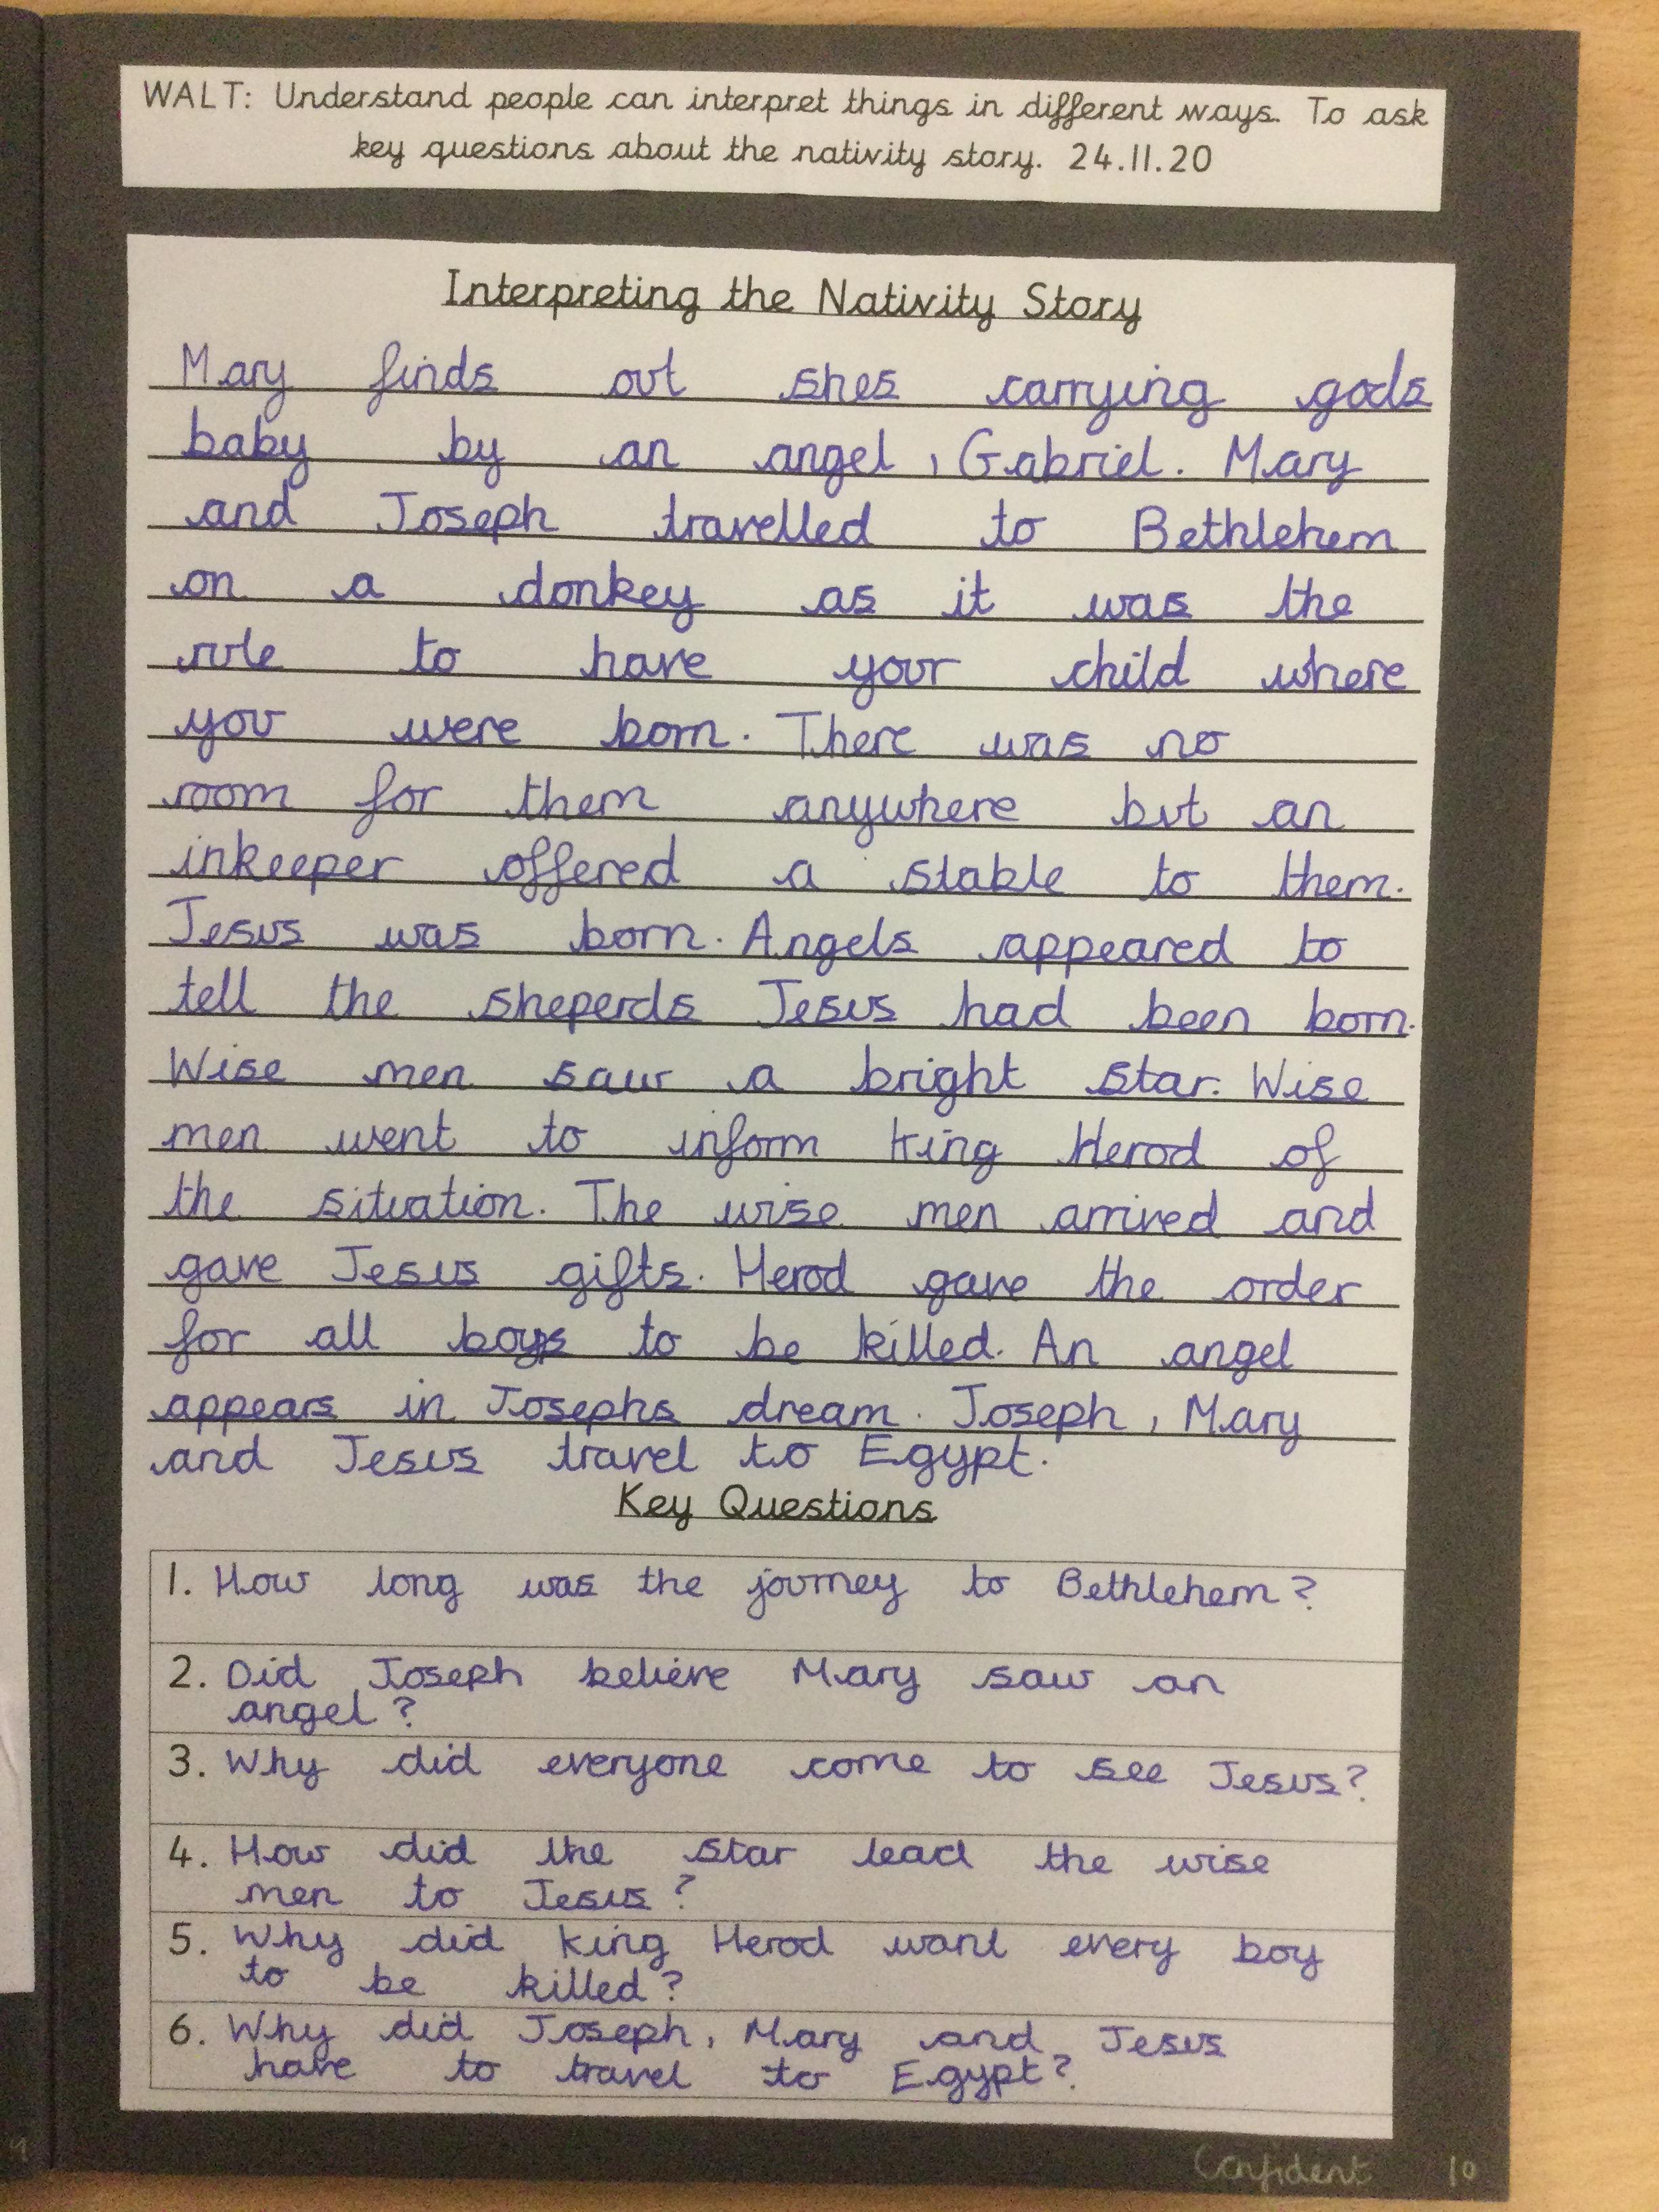 WALT: Understand people can interpret things in different ways. To ask
key questions about the nativity story. 24.11.20
Interpreting the Nativity Story
Mary finds out shes carrying gods
baby by an angel, Gabriel. Mary
and Joseph travelled to Bethlehem
on a donkey as it was the
rule to have your child where
you were born. There was no
room for them anywhere but an
inkeeper offered a stable to them.
Jesus was born. Angels appeared to
tell the sheperds Jesus had been born.
Wise men saw a bright star. Wise
men went to inform king Herod of
the situation. The wise men arrived and
gave Jesus gifts. Herod gave the order
for all boys to be killed. An angel
appears in Josephs dream. Joseph, Mary
and Jesus travel to Egypt.
Key Questions
1. How long was the journey to Bethlehem?
2. Did Joseph believe Mary saw an
angel?
3. Why did everyone come to see Jesus?
4. How did the star lead the wise
men to Jesus?
5. Why did king Herod want every boy
to be killed?
6. Why did Joseph, Mary and Jesus
have to travel to Egypt?
Confident 10